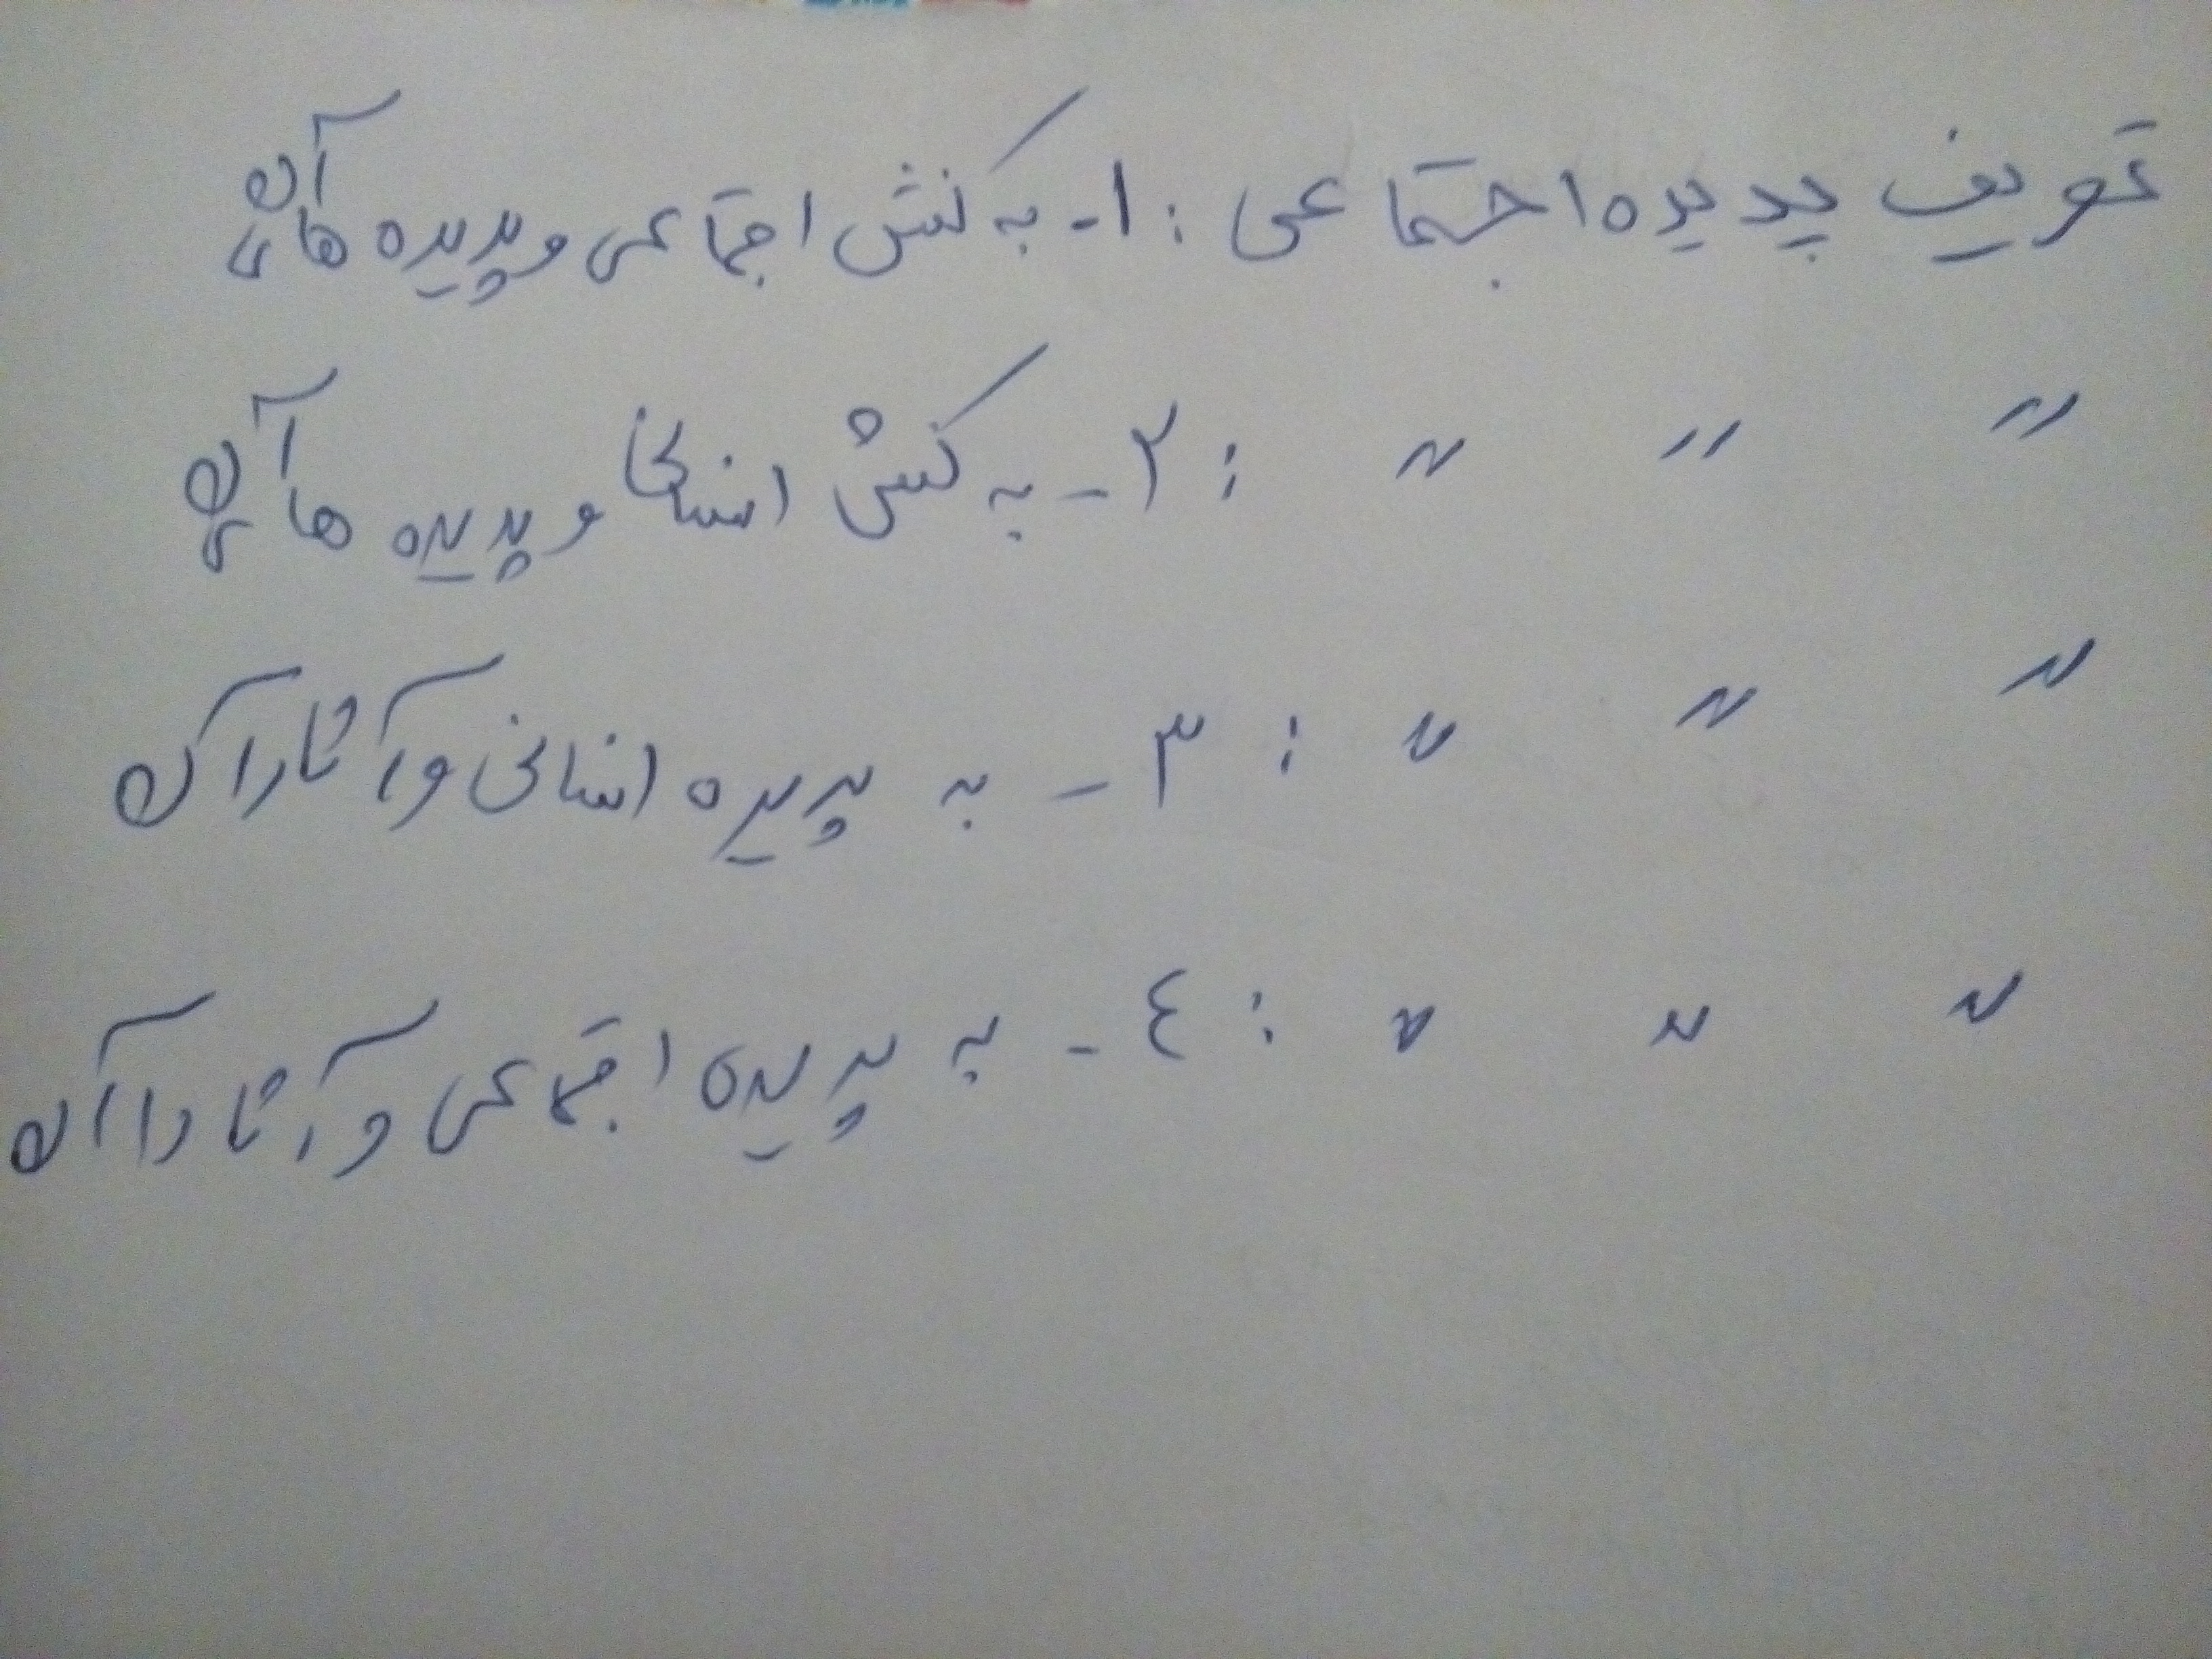 تعریف پدیده اجتماعی : ۱- به کنش اجتماعی و پدیده های آن
〃 〃 〃 : ۲- به کنش انسانی و پدیده های آن
〃 〃 〃 : ۳- به پدیده انسانی و آثار آن
〃 〃 〃 : ٤- به پدیده اجتماعی و آثار آن